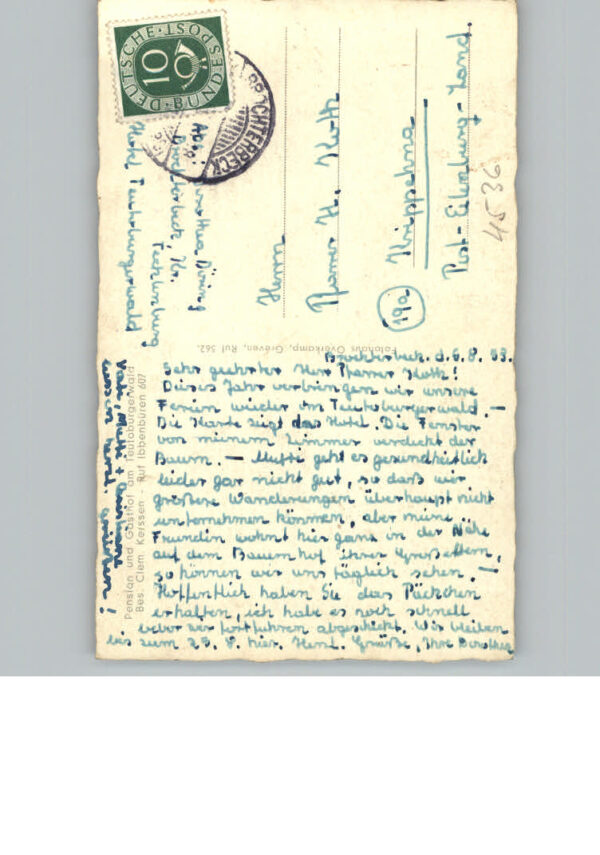 DEUTSCHE · BUNDESPOST
10
BROCHTERBECK
Abs.: Dorothea Düring
Brochterbeck, Kr.
Tecklenburg
Hotel Teutoburgerwald
Herrn
Pfarrer H. Koth
Krippehna
(19a)
Post-Eilenburg-Land.
4536
Fotohaus Overkamp, Greven, Ruf 562.
Pension und Gasthof am Teutoburgerwald
Bes. Clem. Kerssen - Ruf Ibbenbüren 607
Brochterbeck. d. 6. 8. 53.
Sehr geehrter Herr Pfarrer Koth!
Dieses Jahr verbringen wir unsere
Ferien wieder im Teutoburgerwald. –
Die Karte zeigt das Hotel. Die Fenster
von meinem Zimmer verdeckt der
Baum. – Mutti geht es gesundheitlich
leider gar nicht gut, so daß wir
größere Wanderungen überhaupt nicht
unternehmen können, aber meine
Freundin wohnt hier ganz in der Nähe
auf dem Bauernhof ihrer Großeltern,
so können wir uns täglich sehen. !
Hoffentlich haben Sie das Päckchen
erhalten, ich habe es noch schnell
bevor wir fortfuhren abgeschickt. Wir bleiben
bis zum 25. 8. hier. Herzl. Grüße, Ihre Dorothea
Vati, Mutti +
lassen herzl. grüßen!